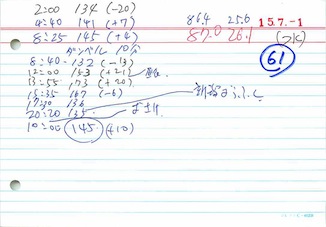 2:00 134 (-20)
4:40 141 (+7)
8:25 145 (+4)
ダンベル 10分
8:40 132 (-13)
12:00 153 (+21)
13:55 173 (+20)
15:35 167 (-6)
17:30 136
20:20 135
10:00 145 (+10)
86.4 25.6
87.0 26.1
15.7.-1
(水)
61